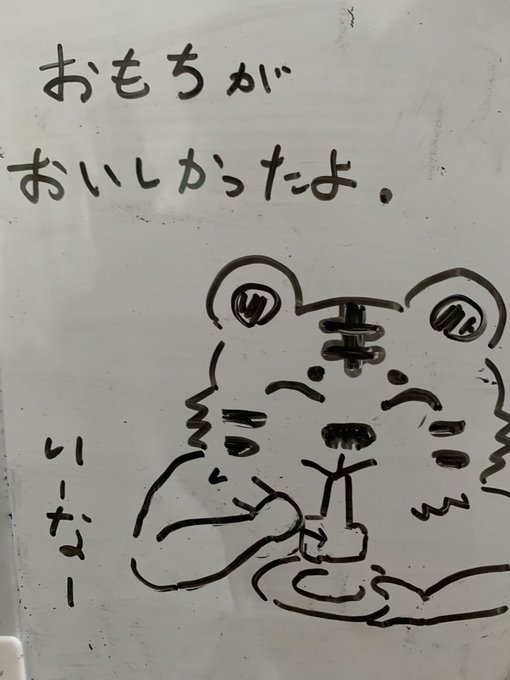 おもちが
おいしかったよ.
いーなー